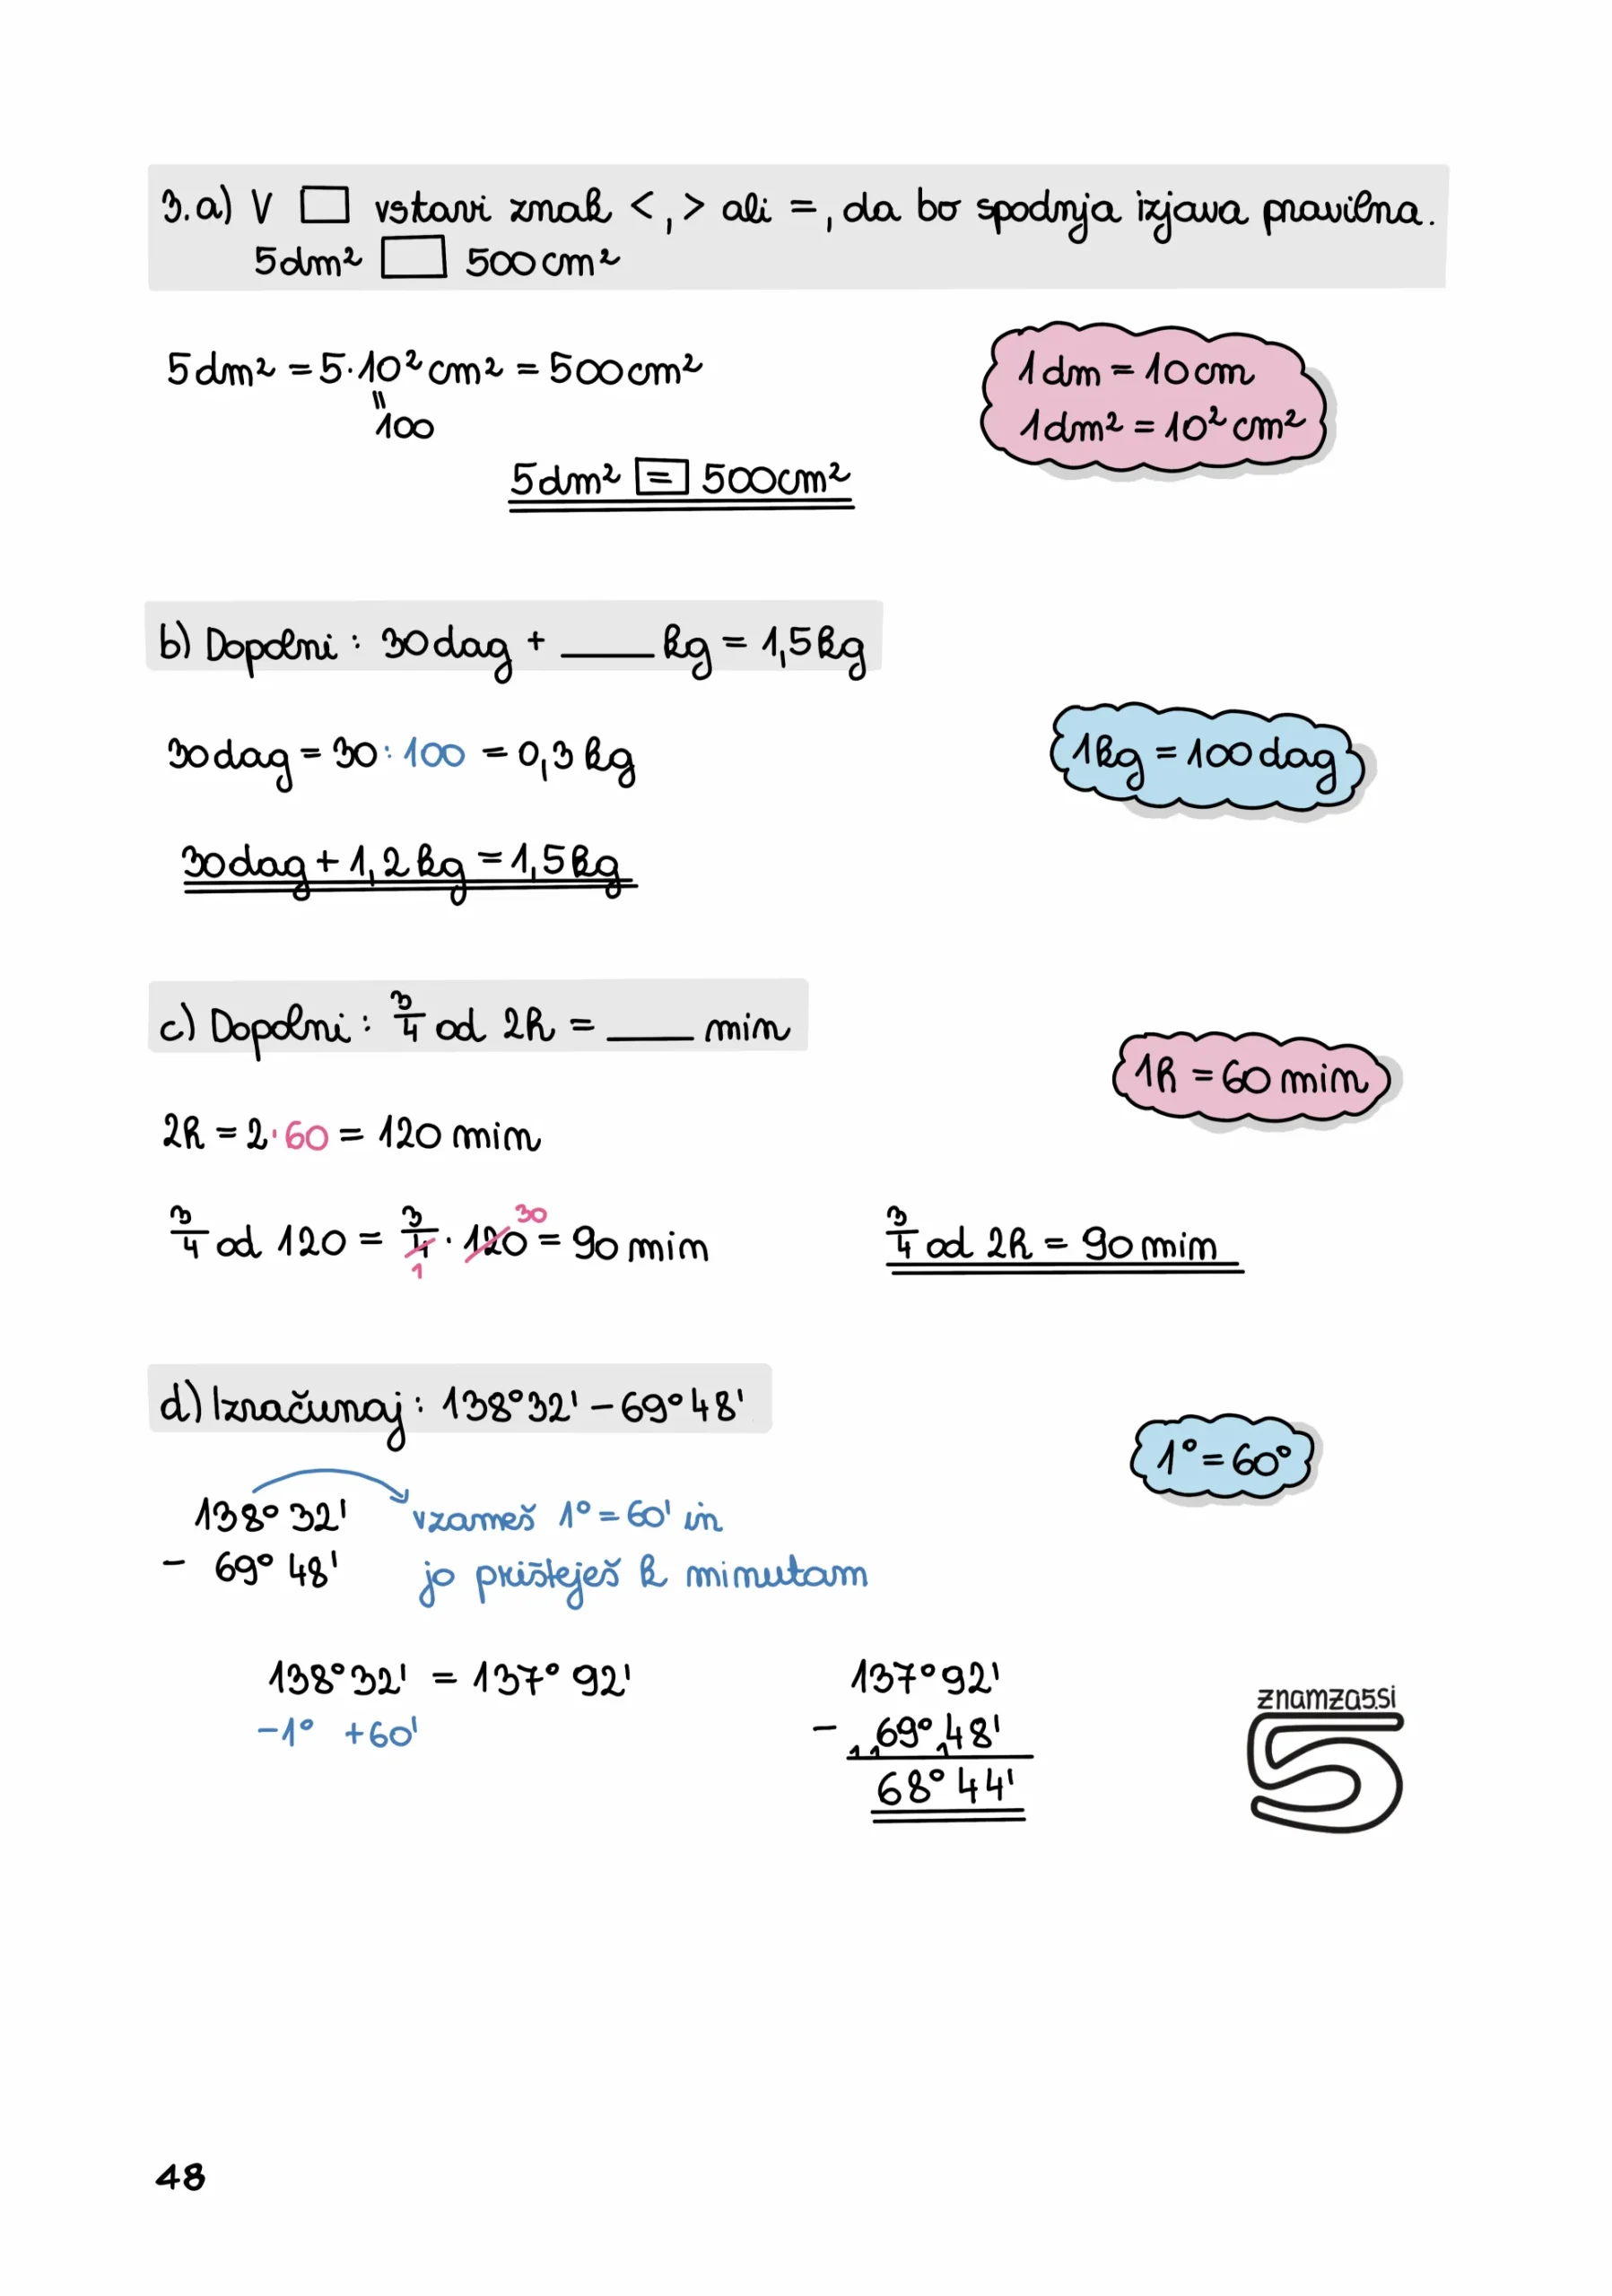 3.a) V □ vstavi znak <, > ali =, da bo spodnja izjava pravilna.
5dm² □ 500cm²
5dm² = 5·10²cm² = 500cm²
"
100
1dm = 10cm
1dm² = 10²cm²
5dm² = 500cm²
b) Dopolni: 30dag + ____ kg = 1,5kg
30dag = 30:100 = 0,3kg
1kg = 100dag
30dag + 1,2kg = 1,5kg
c) Dopolni: 3/4 od 2h = ____ min
1h = 60min
2h = 2·60 = 120min
30
3/4 od 120 = 3/4 · 120 = 90min
1
3/4 od 2h = 90min
d) Izračunaj: 138°32' - 69°48'
1° = 60°
138°32'
- 69°48'
vzameš 1° = 60' in
jo prišteješ k minutam
138°32' = 137°92'
-1° +60'
137°92'
- 69°48'
1 1 1
68°44'
znamza5.si
5
48